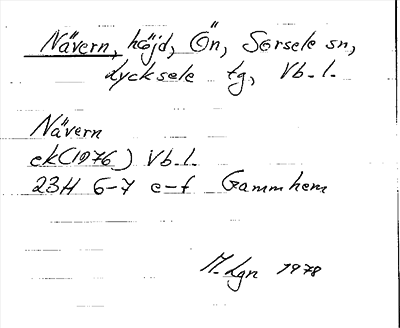 Nävern, höjd, Ön, Sorsele sn,
Lycksele tg, Vb.l.
Nävern
ek(1976) Vb.l.
23H 6-7 e-f Gammhem
M.Lgn 1978